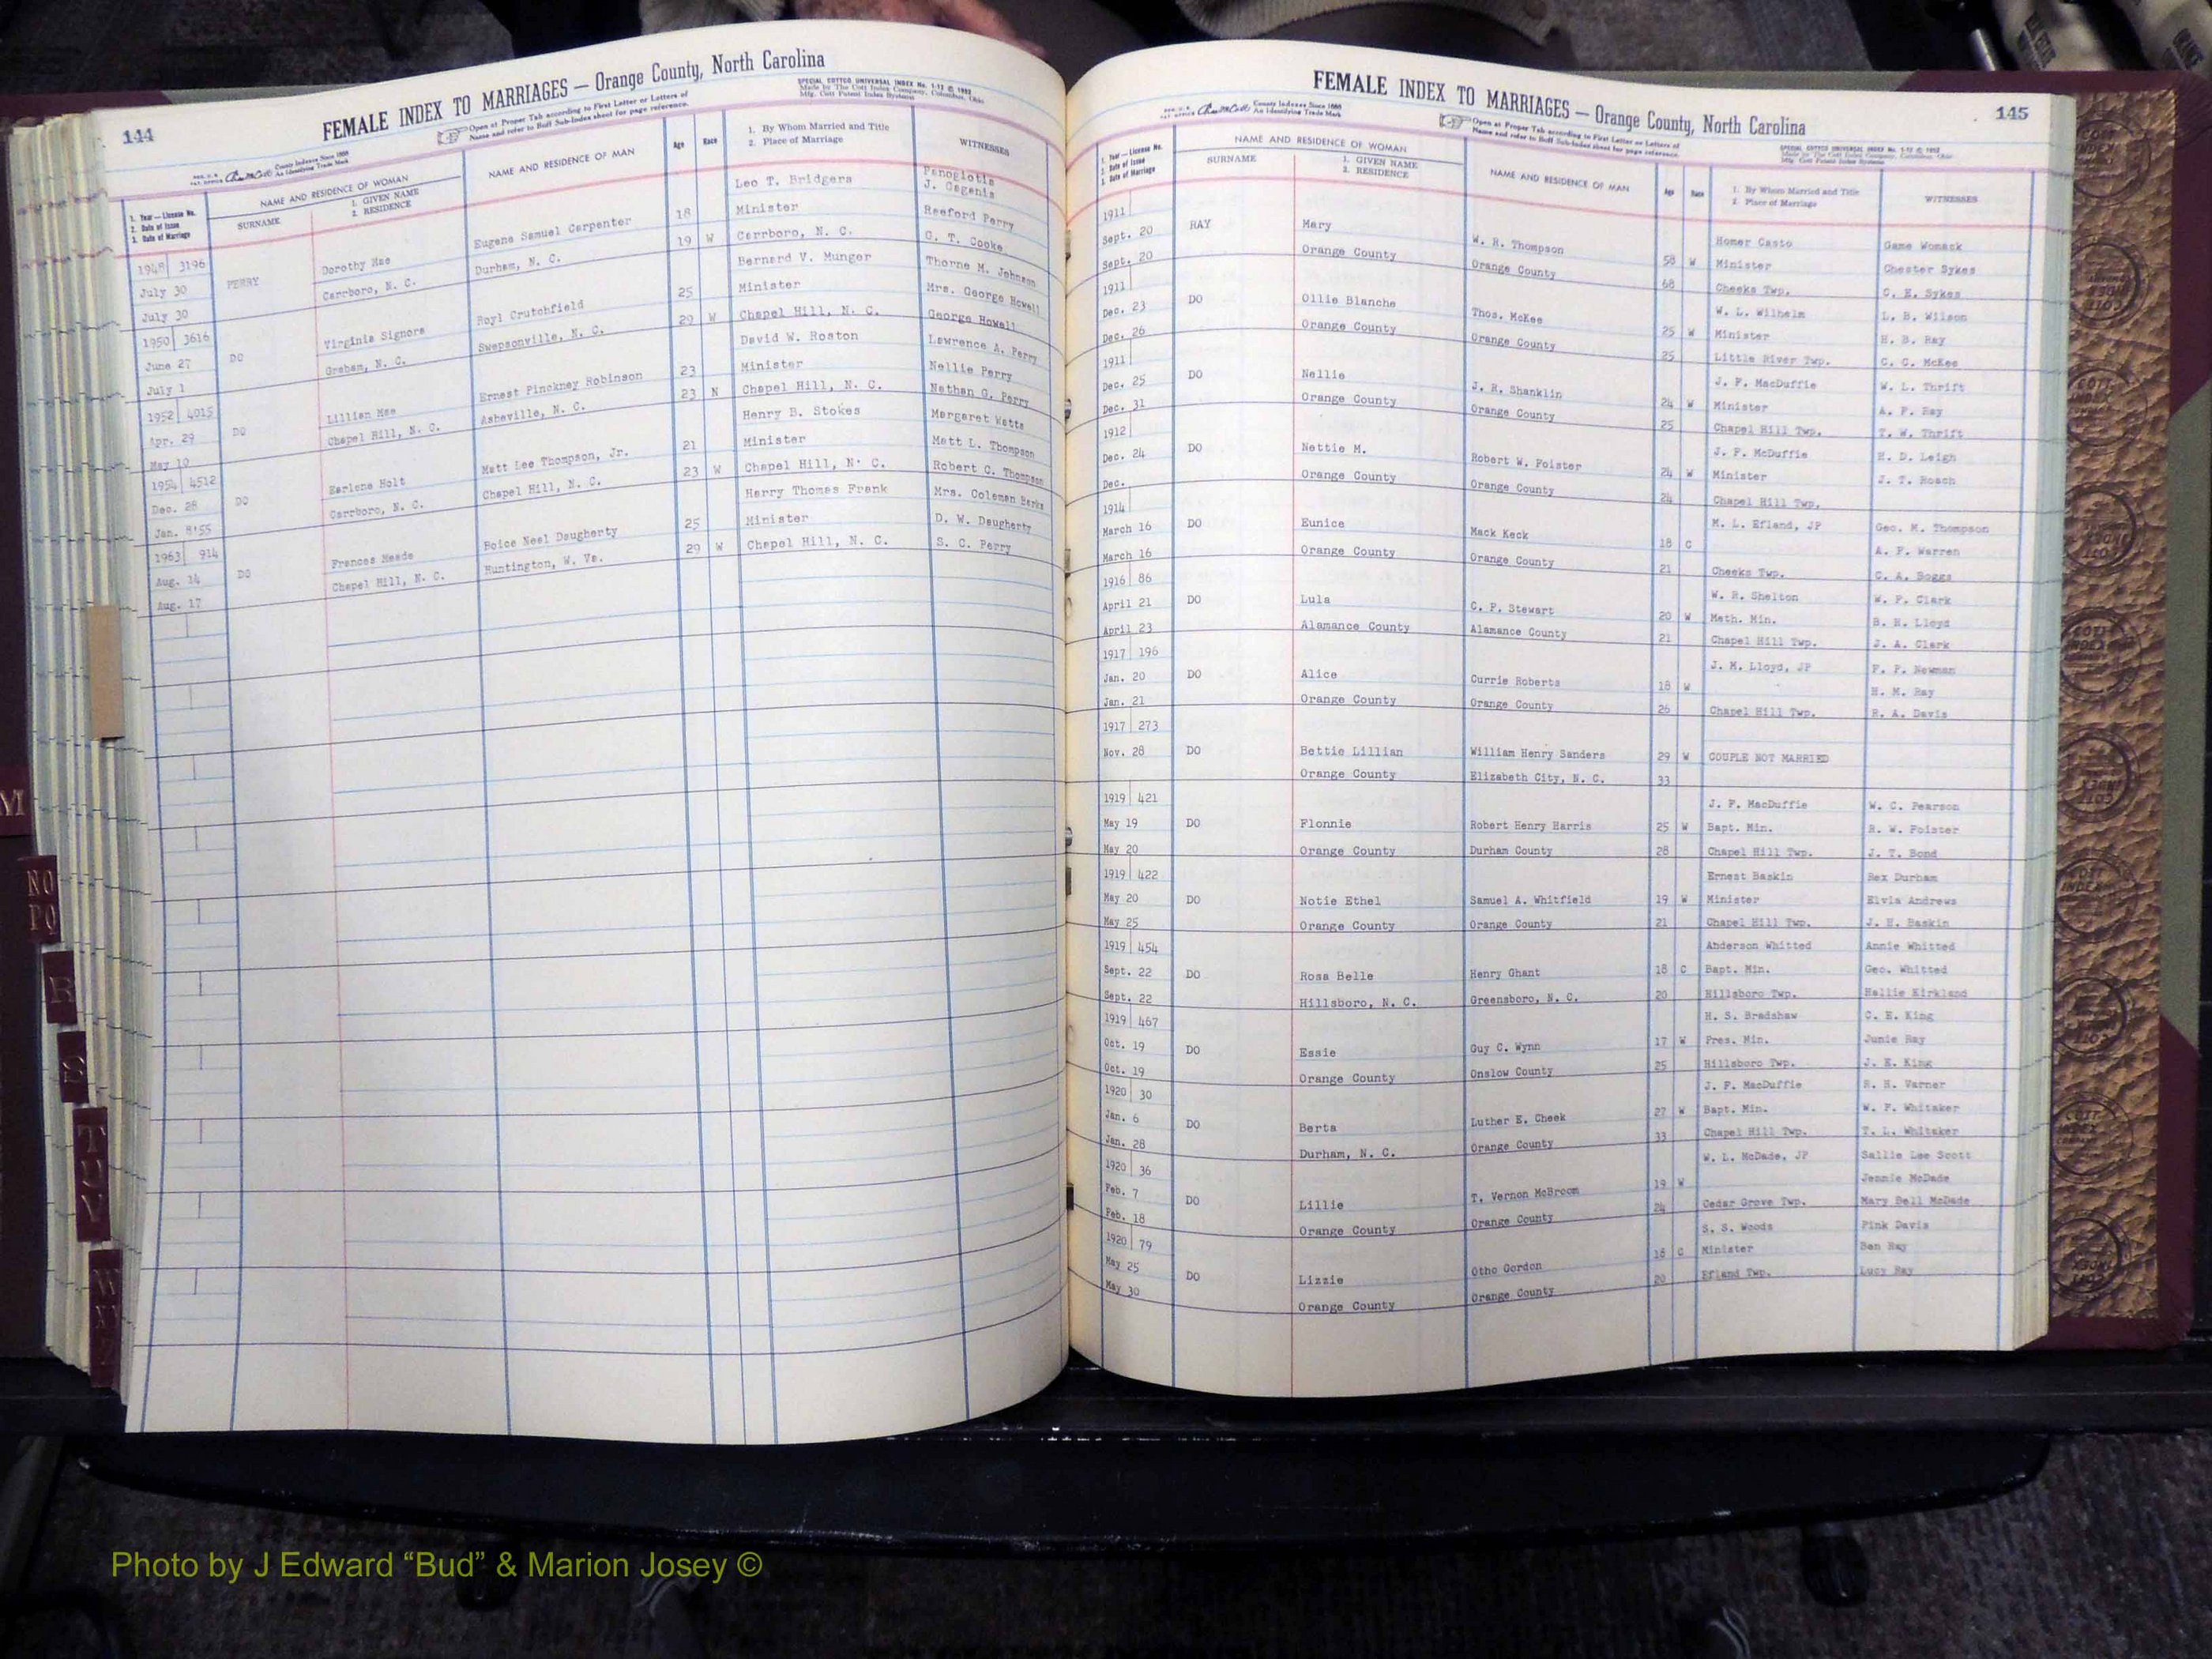 144
FEMALE INDEX TO MARRIAGES — Orange County, North Carolina
Open at Proper Tab according to First Letter or Letters of
Name and refer to Buff Sub-Index sheet for page reference.
SPECIAL COTTCO UNIVERSAL INDEX No. 1-12 © 1952
Made by The Cott Index Company, Columbus, Ohio
Mfg. Cott Patent Index Systems
County Indexes Since 1888
An Identifying Trade Mark
1. Year — License No.
2. Date of Issue
3. Date of Marriage
NAME AND RESIDENCE OF WOMAN
SURNAME
1. GIVEN NAME
2. RESIDENCE
NAME AND RESIDENCE OF MAN
Age
Race
1. By Whom Married and Title
2. Place of Marriage
WITNESSES
1948 3196 Leo T. Bridgers Panogiotis J. Gagenis
July 30 PERRY Dorothy Mae Eugene Samuel Carpenter 18 Minister Reeford Perry
July 30 Carrboro, N. C. Durham, N. C. 19 W Carrboro, N. C. C. T. Cooke
1950 3616 Bernard V. Munger Thorne M. Johnson
June 27 DO Virginia Signora Royl Crutchfield 25 Minister Mrs. George Howell
July 1 Graham, N. C. Swepsonville, N. C. 29 W Chapel Hill, N. C. George Howell
1952 4015 David W. Roston Lawrence A. Perry
Apr. 29 DO Lillian Mae Ernest Pinckney Robinson 23 Minister Nellie Perry
May 10 Chapel Hill, N. C. Asheville, N. C. 23 N Chapel Hill, N. C. Nathan G. Perry
1954 4512 Henry B. Stokes Margaret Watts
Dec. 28 DO Earlene Holt Matt Lee Thompson, Jr. 21 Minister Matt L. Thompson
Jan. 8'55 Carrboro, N. C. Chapel Hill, N. C. 23 W Chapel Hill, N. C. Robert C. Thompson
1963 914 Harry Thomas Frank Mrs. Coleman Berks
Aug. 14 DO Frances Meade Boice Neel Daugherty 25 Minister D. W. Daugherty
Aug. 17 Chapel Hill, N. C. Huntington, W. Va. 29 W Chapel Hill, N. C. S. C. Perry
145
FEMALE INDEX TO MARRIAGES — Orange County, North Carolina
County Indexes Since 1888
An Identifying Trade Mark
Open at Proper Tab according to First Letter or Letters of
Name and refer to Buff Sub-Index sheet for page reference.
SPECIAL COTTCO UNIVERSAL INDEX No. 1-12 © 1952
1. Year — License No.
2. Date of Issue
3. Date of Marriage
NAME AND RESIDENCE OF WOMAN
SURNAME
1. GIVEN NAME
2. RESIDENCE
NAME AND RESIDENCE OF MAN
Age
Race
1. By Whom Married and Title
2. Place of Marriage
WITNESSES
1911 Homer Casto Game Womack
Sept. 20 RAY Mary W. R. Thompson 58 W Minister Chester Sykes
Sept. 20 Orange County Orange County 68 Cheeks Twp. C. E. Sykes
1911 W. L. Wilhelm L. B. Wilson
Dec. 23 DO Ollie Blanche Thos. McKee 25 W Minister H. B. Ray
Dec. 26 Orange County Orange County 25 Little River Twp. C. C. McKee
1911 J. F. MacDuffie W. L. Thrift
Dec. 25 DO Nellie J. R. Shanklin 24 W Minister A. F. Ray
Dec. 31 Orange County Orange County 25 Chapel Hill Twp. T. W. Thrift
1912 J. F. McDuffie H. D. Leigh
Dec. 24 DO Nettie M. Robert W. Foister 24 W Minister J. T. Roach
Dec. Orange County Orange County 24 Chapel Hill Twp.
1914 M. L. Efland, JP Geo. M. Thompson
March 16 DO Eunice Mack Keck 18 C A. F. Warren
March 16 Orange County Orange County 21 Cheeks Twp. C. A. Boggs
1916 86 W. R. Shelton W. P. Clark
April 21 DO Lula C. P. Stewart 20 W Meth. Min. B. H. Lloyd
April 23 Alamance County Alamance County 21 Chapel Hill Twp. J. A. Clark
1917 196 J. M. Lloyd, JP F. P. Newman
Jan. 20 DO Alice Currie Roberts 18 W H. M. Ray
Jan. 21 Orange County Orange County 26 Chapel Hill Twp. R. A. Davis
1917 273
Nov. 28 DO Bettie Lillian William Henry Sanders 29 W COUPLE NOT MARRIED
Orange County Elizabeth City, N. C. 33
1919 421 J. F. MacDuffie W. C. Pearson
May 19 DO Flonnie Robert Henry Harris 25 W Bapt. Min. R. W. Foister
May 20 Orange County Durham County 28 Chapel Hill Twp. J. T. Bond
1919 422 Ernest Baskin Rex Durham
May 20 DO Notie Ethel Samuel A. Whitfield 19 W Minister Elvia Andrews
May 25 Orange County Orange County 21 Chapel Hill Twp. J. H. Baskin
1919 454 Anderson Whitted Annie Whitted
Sept. 22 DO Rosa Belle Henry Ghant 18 C Bapt. Min. Geo. Whitted
Sept. 22 Hillsboro, N. C. Greensboro, N. C. 20 Hillsboro Twp. Hallie Kirkland
1919 467 H. S. Bradshaw C. E. King
Oct. 19 DO Essie Guy C. Wynn 17 W Pres. Min. Junie Ray
Oct. 19 Orange County Onslow County 25 Hillsboro Twp. J. E. King
1920 30 J. F. MacDuffie R. H. Varner
Jan. 6 DO Berta Luther E. Cheek 27 W Bapt. Min. W. F. Whitaker
Jan. 28 Durham, N. C. Orange County 33 Chapel Hill Twp. T. L. Whitaker
1920 36 W. L. McDade, JP Sallie Lee Scott
Feb. 7 DO Lillie T. Vernon McBroom 19 W Jennie McDade
Feb. 18 Orange County Orange County 24 Cedar Grove Twp. Mary Bell McDade
1920 79 S. S. Woods Pink Davis
May 25 DO Lizzie Otho Gordon 18 C Minister Ben Ray
May 30 Orange County Orange County 20 Efland Twp. Lucy Ray
M
NO
PQ
R
S
T
U
V
W
Photo by J Edward “Bud” & Marion Josey ©